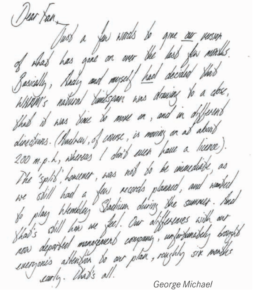 Dear Fan,
Just a few words to give our version
of what has gone on over the last few months.
Basically, Andy and myself had decided that
WHAM!'s natural timespan was drawing to a close,
that it was time to move on, and in different
directions. (Andrew, of course, is moving on at about
200 m.p.h., whereas I don't even have a licence).
The 'split' however, was not to be immediate, as
we still had a few records planned, and wanted
to play Wembley Stadium during the summer. And
that's still how we feel. Our differences with our
now departed management company, unfortunately brought
everyone's attention to our plan, roughly six months
early. That's all.
George Michael